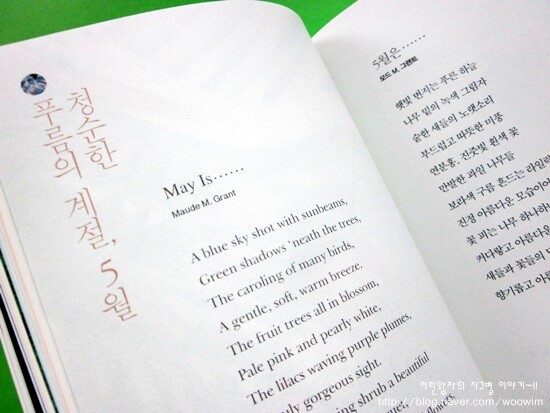 청순한
푸름의 계절, 5월
May Is······
Maude M. Grant
A blue sky shot with sunbeams,
Green shadows 'neath the trees,
The caroling of many birds,
A gentle, soft, warm breeze.
The fruit trees all in blossom,
Pale pink and pearly white,
The lilacs waving purple plumes,
gorgeous sight.
shrub a beautiful
5월은······
모드 M. 그랜트
햇빛 번지는 푸른 하늘
나무 밑의 녹색 그림자
숱한 새들의 노랫소리
부드럽고 따뜻한 미풍
연분홍, 진줏빛 흰색 꽃
만발한 과일 나무들
보라색 구름 흔드는 라일락
진정 아름다운 모습이어
꽃 피는 나무 하나하
커다랗고 아름다운
새들과 꽃들의
향기롭고 아
어린왕자의 지구별 이야기~!!
http://blog.naver.com/woowim